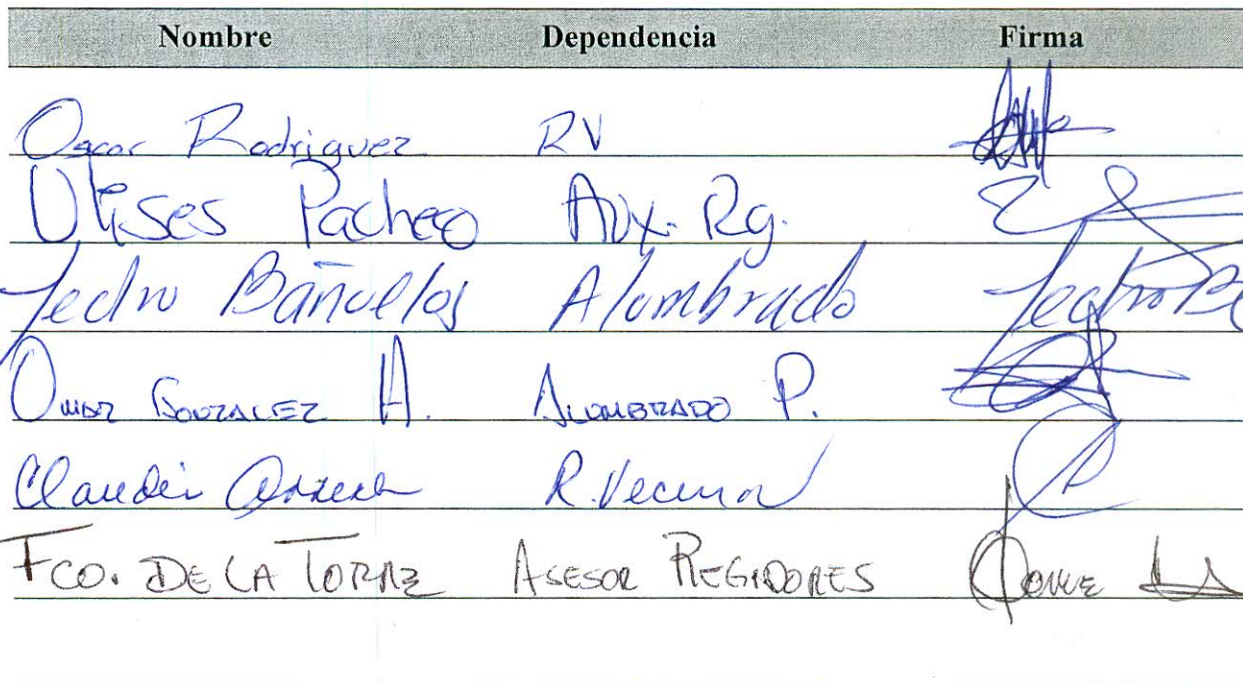 Nombre Dependencia Firma
Oscar Rodriguez RV
Ulises Pacheco Aux. Rg.
Pedro Bañuelos Alumbrado Pedro B
Omar Gonzalez A. Alumbrado P.
Claudia R. Vecinal
Fco. De la Torre Asesor Regidores